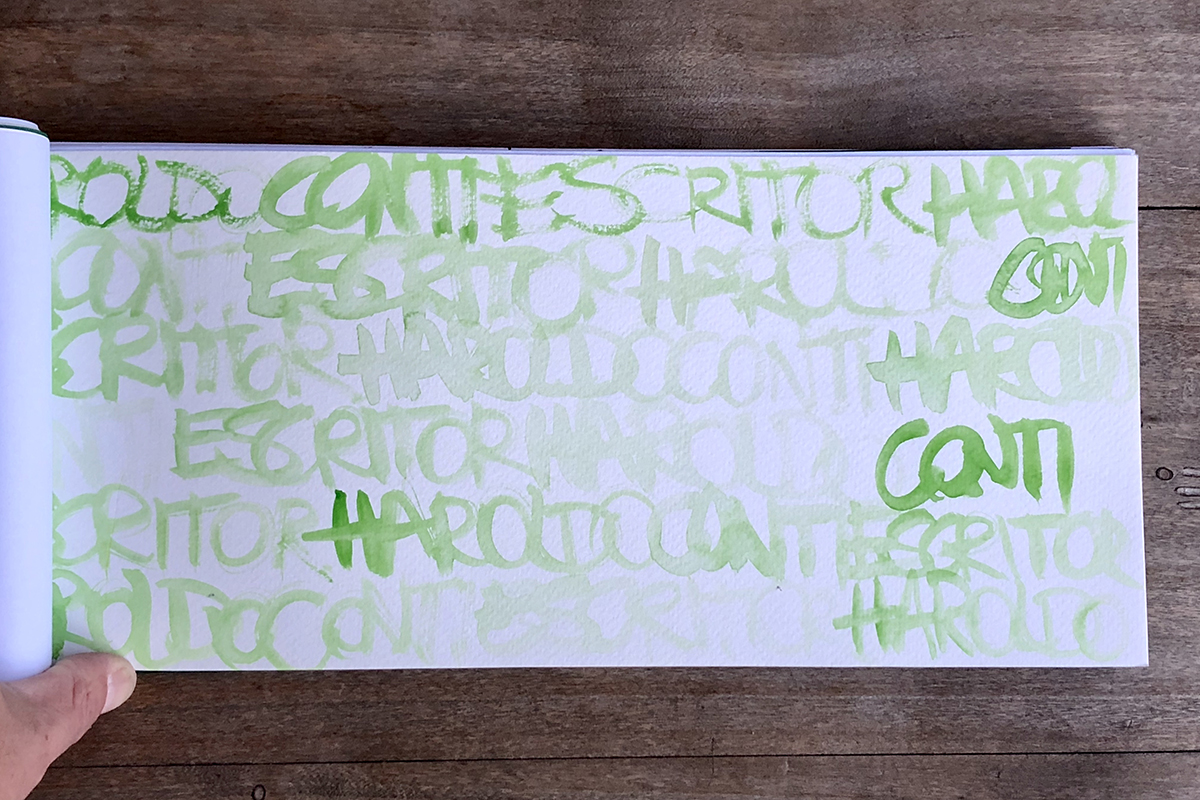 ROLDO CONTI ESCRITOR HAROL
CONTI ESCRITOR HAROLDO CONTI
SCRITOR HAROLDO CONTI HAROLD
NTI ESCRITOR HAROLDO CONTI
SCRITOR HAROLDO CONTI ESCRITOR
ROLDO CONTI ESCRITOR HAROLDO